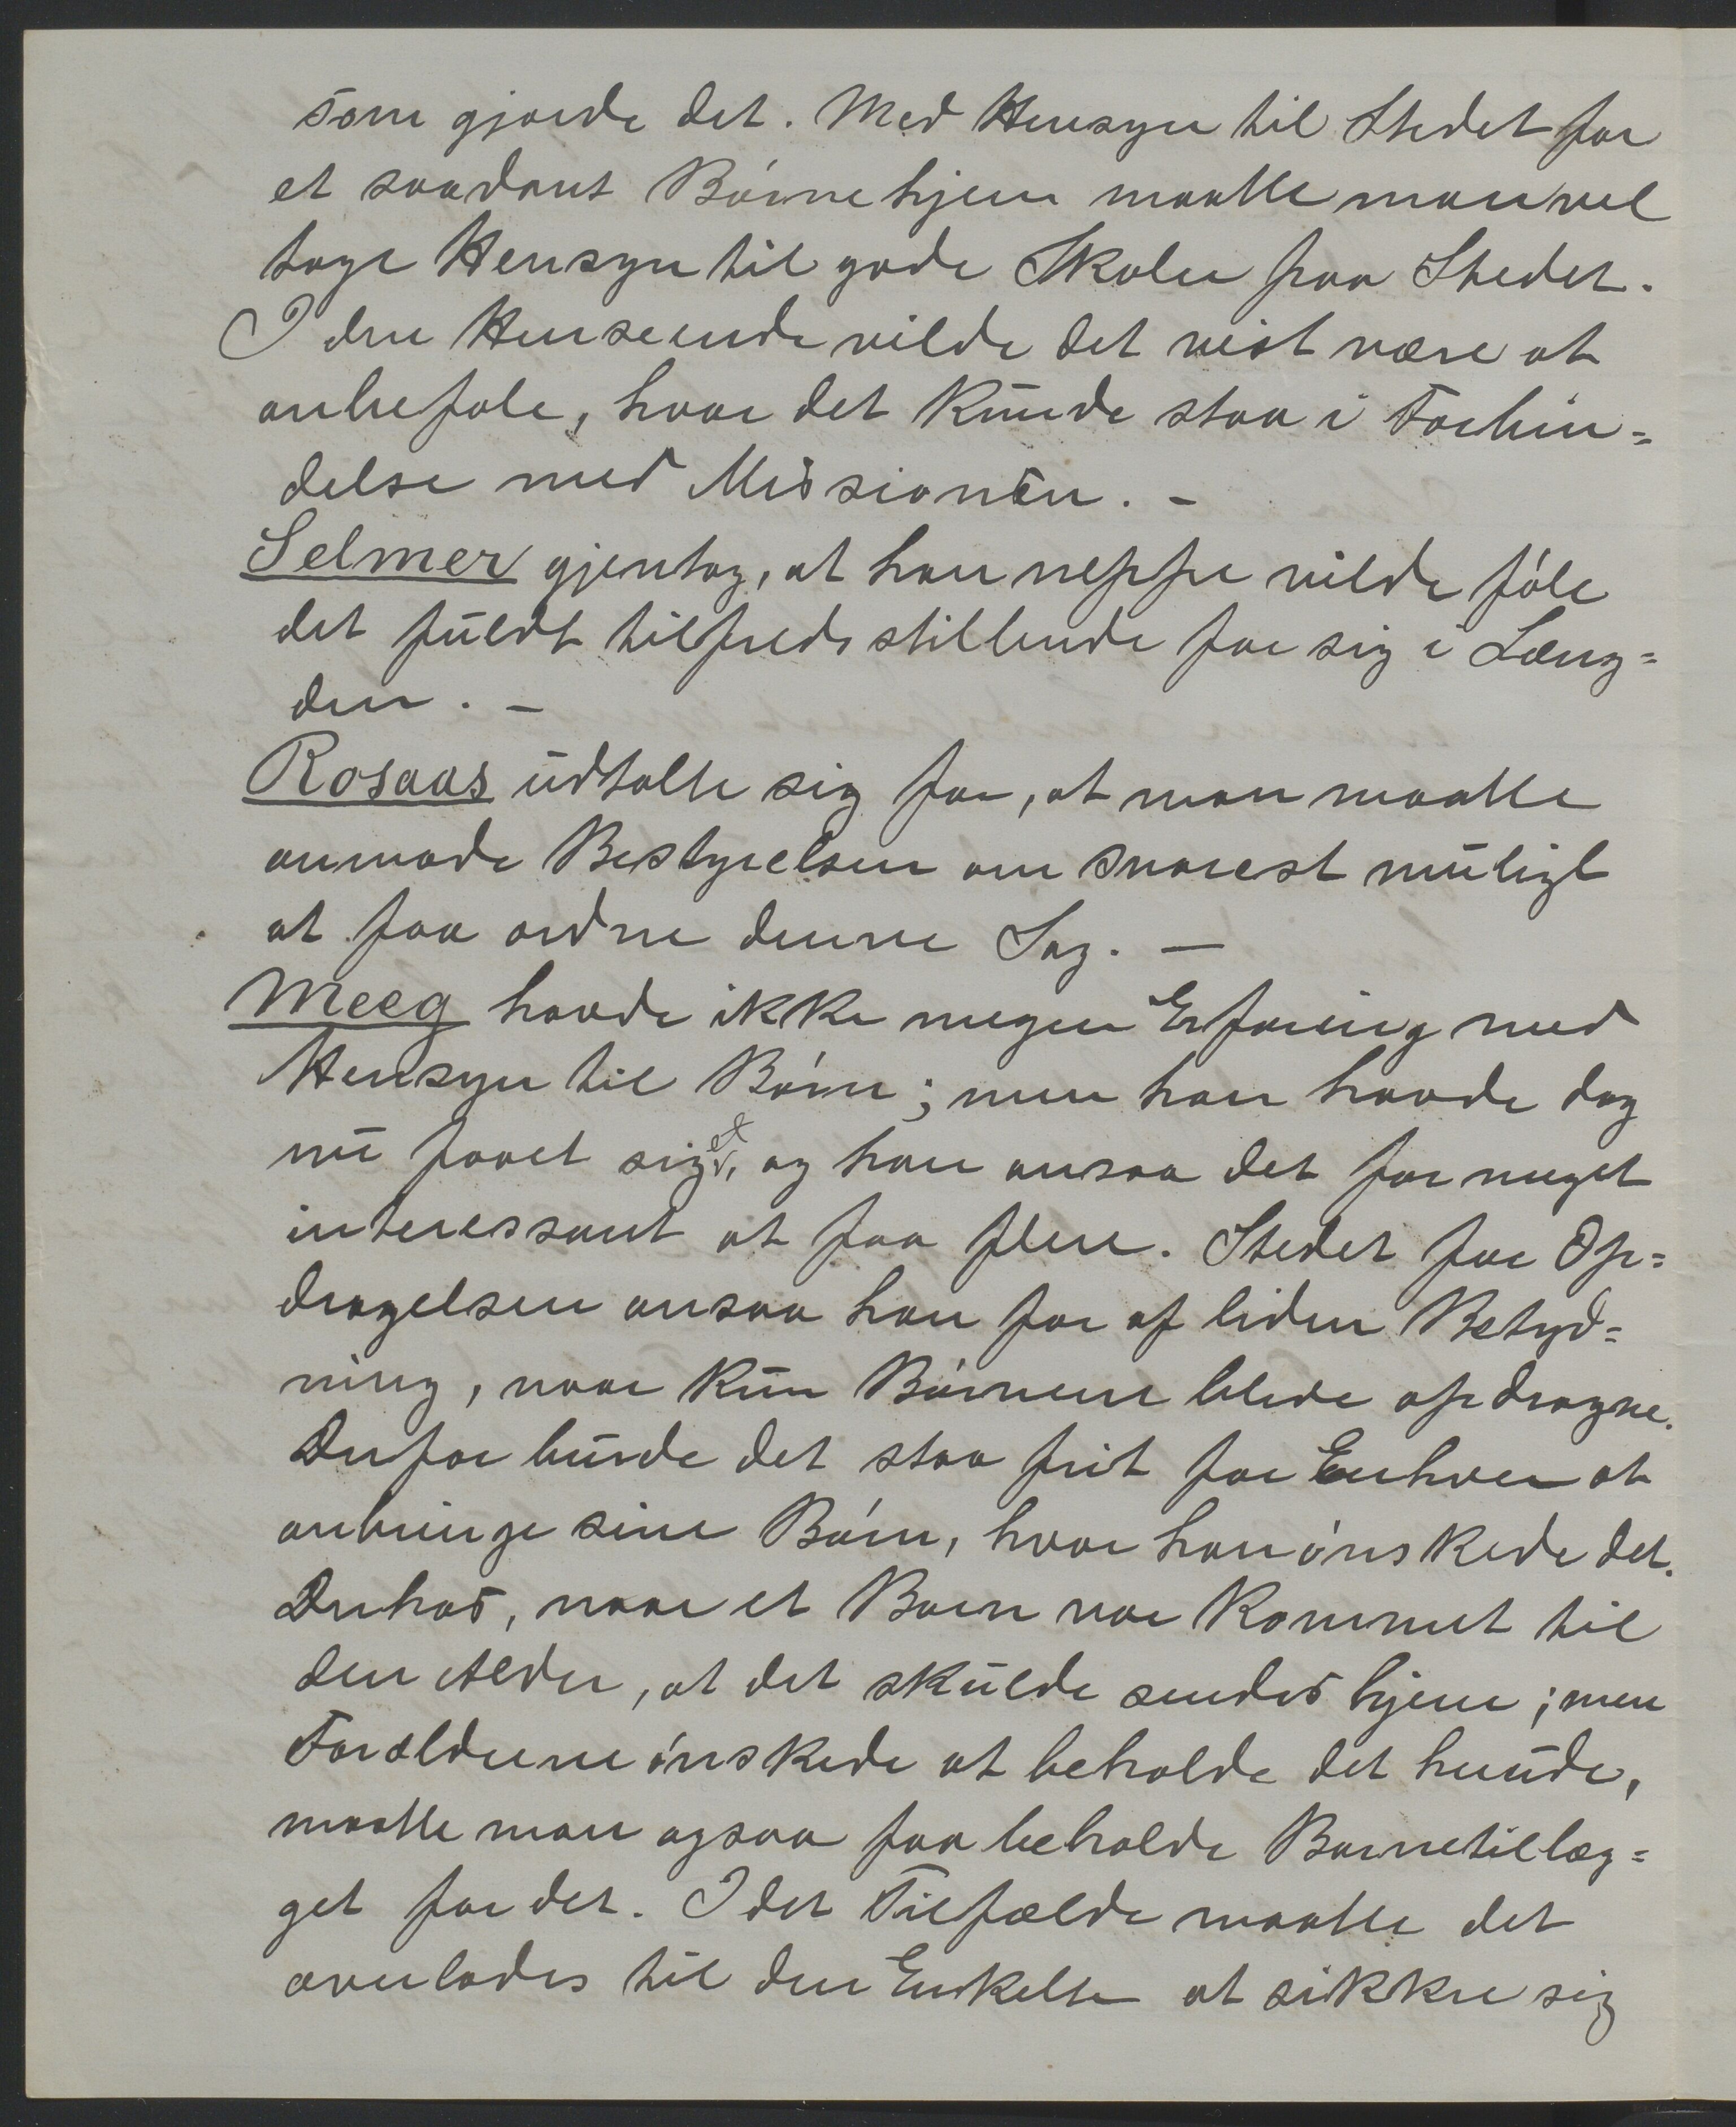 som gjorde det. Med Hensyn til Stedet for
et saadant Börnehjem maatte man vel
tage Hensyn til gode Skoler paa Stedet.
I den Henseende vilde det vist være at
anbefale, hvor det kunde staa i Forbin=
delse med Missionen. –
Selmer gjentog, at han neppe vilde föle
det fuldt tilfredsstillende for sig i Læng=
den. –
Rosaas udtalte sig for, at man maatte
anmode Bestyrelsen om snarest muligt
at faa ordne denne Sag. –
Meeg havde ikke megen Erfaring med
Hensyn til Börn; men han havde dog
nu faaet sig et, og han ansaa det for meget
interessant at faa flere. Stedet for Op=
dragelsen ansaa han for af liden Betyd=
ning, naar kun Börnene bleve opdragne.
Derfor burde det staa frit for Enhver at
anbringe sine Börn, hvor han önskede det.
Derhos, naar et Barn var kommet til
den Alder, at det skulde sendes hjem; men
Forældrene önskede at beholde det herude,
maatte man ogsaa faa beholde Barnetillæg=
get for det. I det Tilfælde maatte det
overlades til den Enkelte at sikkre sig